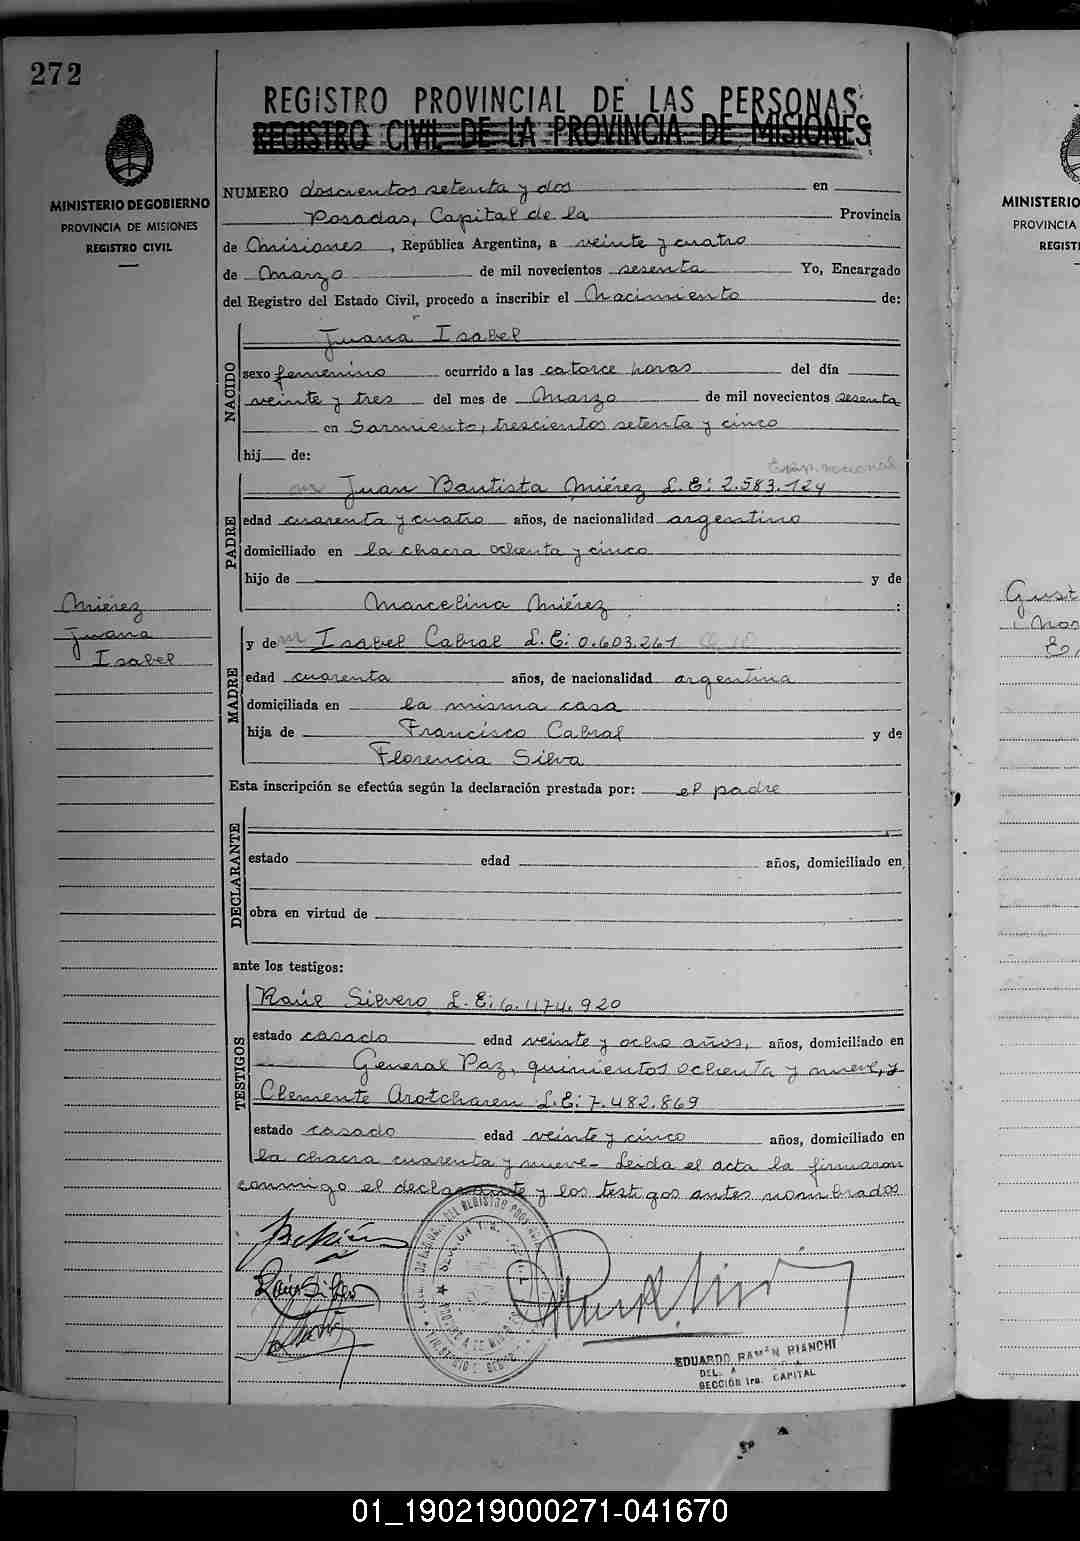 272
REGISTRO PROVINCIAL DE LAS PERSONAS
REGISTRO CIVIL DE LA PROVINCIA DE MISIONES
MINISTERIO DE GOBIERNO
PROVINCIA DE MISIONES
REGISTRO CIVIL
NUMERO doscientos setenta y dos en
Posadas, Capital de la Provincia
de Misiones, República Argentina, a veinte y cuatro
de Marzo de mil novecientos sesenta Yo, Encargado
del Registro del Estado Civil, procedo a inscribir el Nacimiento de:
NACIDO
Juana Isabel
sexo femenino ocurrido a las catorce horas del día
veinte y tres del mes de Marzo de mil novecientos sesenta
en Sarmiento, trescientos setenta y cinco
hij de:
PADRE
Juan Bautista Miérez L.E: 2.583.124
edad cuarenta y cuatro años, de nacionalidad argentino
domiciliado en la chacra ochenta y cinco
hijo de y de
Marcelina Miérez :
Miérez
Juana
Isabel
MADRE
y de Isabel Cabral L.E: 0.603.261
edad cuarenta años, de nacionalidad argentina
domiciliada en la misma casa
hija de Francisco Cabral y de
Florencia Silva
Esta inscripción se efectúa según la declaración prestada por: el padre
DECLARANTE
estado edad años, domiciliado en
obra en virtud de
ante los testigos:
TESTIGOS
Raúl Silvero L.E: 6.474.920
estado casado edad veinte y ocho años, años, domiciliado en
General Paz, quinientos ochenta y nueve, y
Clemente Arotcharen L.E: 7.482.869
estado casado edad veinte y cinco años, domiciliado en
la chacra cuarenta y nueve- Leida el acta la firmaron
conmigo el declarante y los testigos antes nombrados
EDUARDO RAMÓN BIANCHI
SECCIÓN 1ra. CAPITAL
MINISTERIO
PROVINCIA
REGIST
Gust
01_190219000271-041670